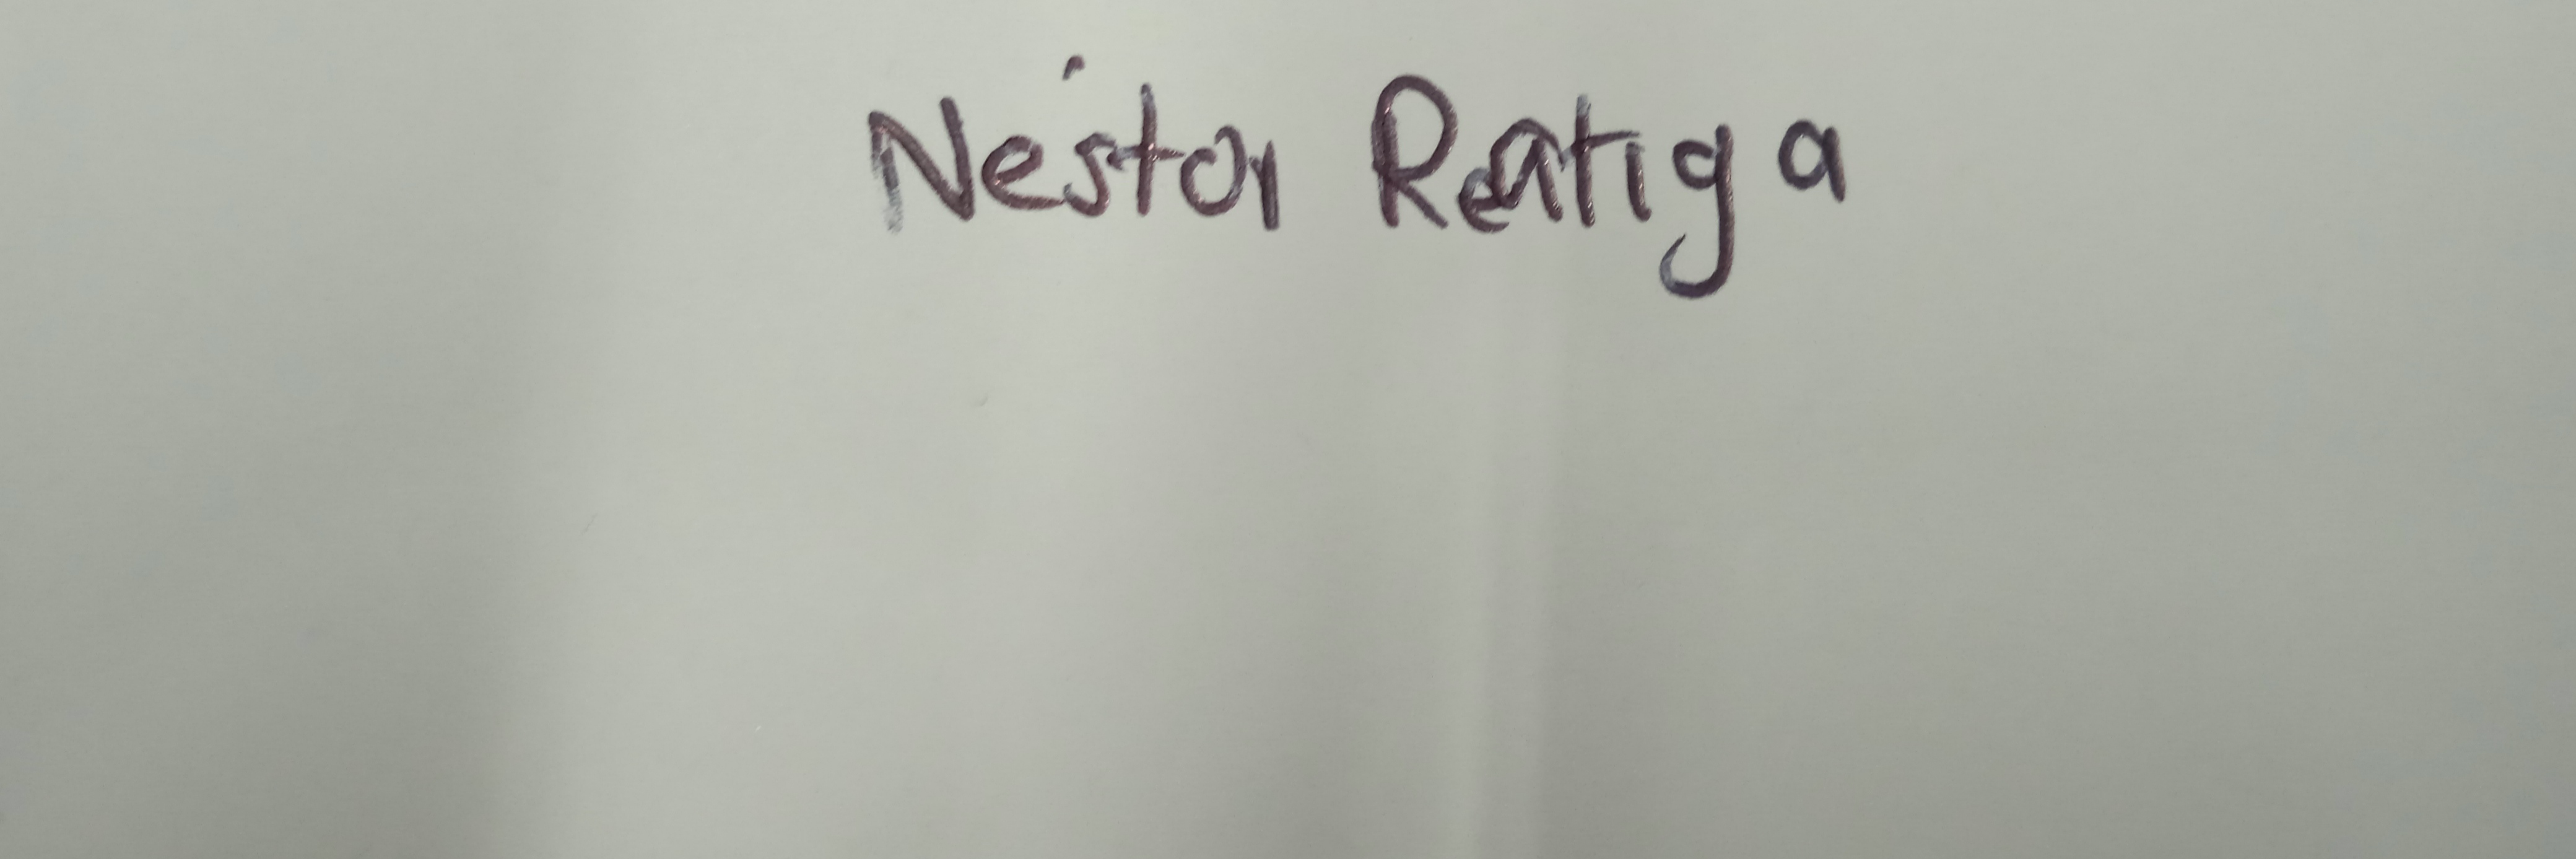 Néstor Reatiga